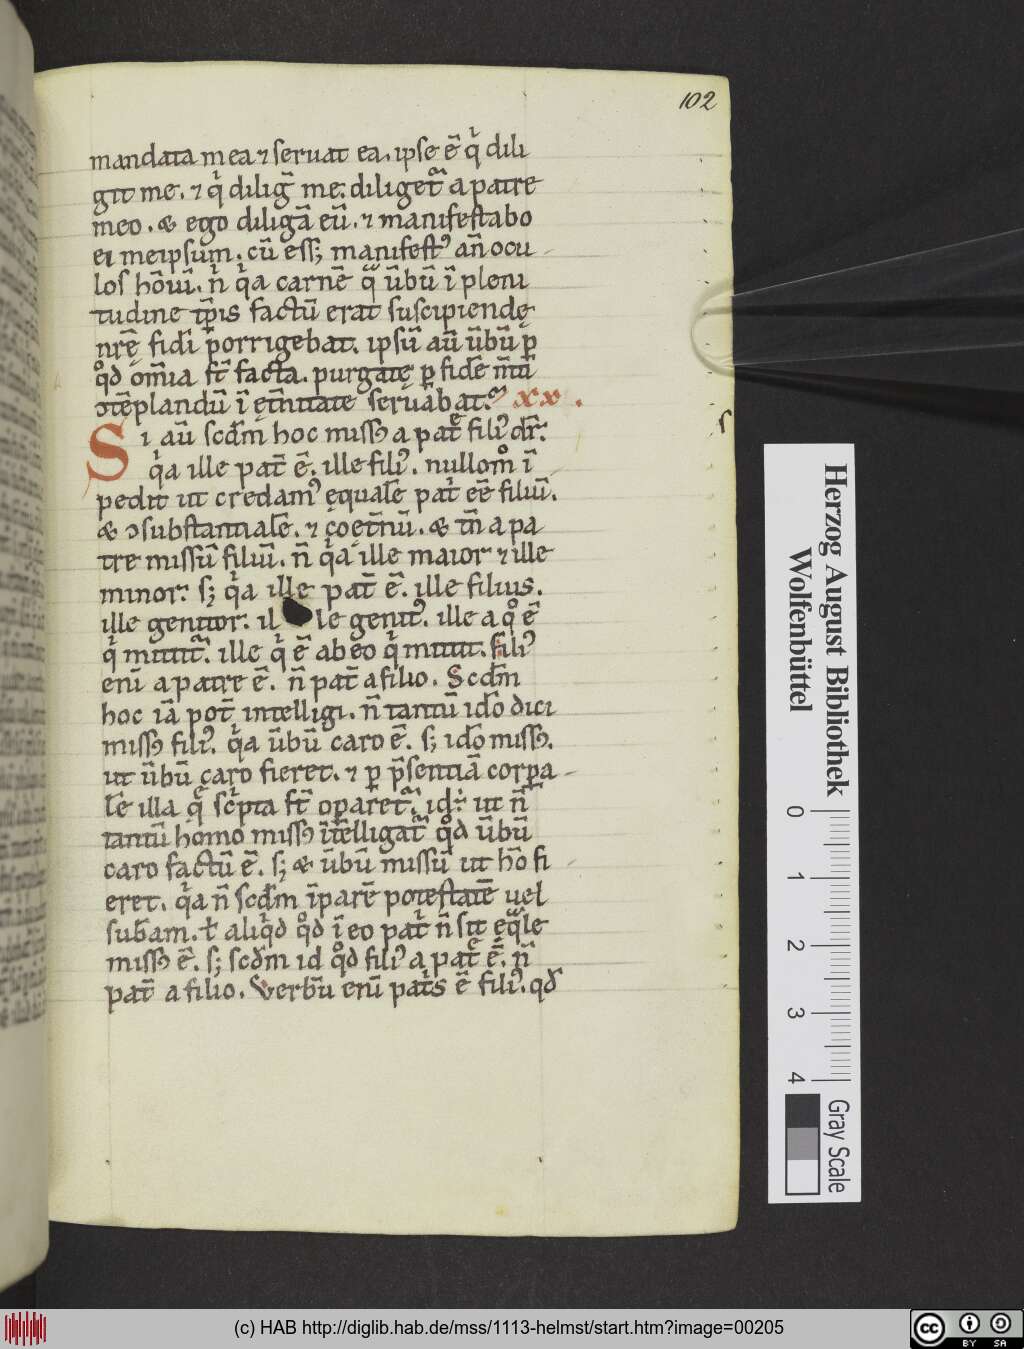 102
mandata mea ⁊ seruat ea. ipse ē q̇ dili
git me. ⁊ q̇ diliḡ me: diliget᷑ a patre
meo. & ego diligā eū. ⁊ manifestabo
ei meipsum. cū ess; manifestꝰ an̄ ocu
los hōiū. n̄ q̇a carnē q̄ ūbū ī pleni
tudine tp̄is factū erat suscipiendę
nrę̄ fidi porrigebat. ipsū aū ūbū ꝑ
qd̊ om̄ia st̄ facta. purgatę ꝑ fidē m̄ti
ↄtēplandū ī ęt̄nitate seruabat. xx.
Si aū scdm̄ hoc missꝰ a patē filiꝰ dr̄.
q̇a ille pat̄ ē. ille filiꝰ. nullom̊ ī
pedit ut credamꝰ ęqualē pat̍ eē filiū.
& ↄsubstantialē. ⁊ ꝯęt̄nū. & tn̄ a pa
tre missū filiū. n̄ q̇a ille maior ⁊ ille
minor. s; q̇a ille pat̄ ē. ille filius.
ille genitor. il le genitꝰ. ille a q̊ ē
q̇ mittit᷑. ille q̇ ē ab eo q̇ mittit. filiꝰ
eni̅ a patre ē. n̄ pat̄ a filio. Scdm̄
hoc iā pot̄ intelligi. n̄ tantū idō dici
missꝰ filiꝰ. q̇a ūbū caro ē. s; idō missꝰ.
ut ūbū caro fieret. ⁊ ꝑ p̄sentiā corꝑa
lē illa q̄ sc̍pta st̄ oꝑaret᷑. id.̄ ut n̄
tantū homo missꝰ īt̄elligat᷑ qd̊ ūbū
caro factū ē. s; & ūbū missū ut hō fi
eret. q̇a n̄ scdm̄ īparē potestatē uel
sub̄am. ł aliq̇d qd̊ ī eo pat̍ n̄ sit ęqᵃle
missꝰ ē. s; scdm̄ id qd̊ filiꝰ a patē ē. n̄
pat̄ a filio. Verbū eni̅ pat̍s ē filiꝰ. qd̄
Herzog August Bibliothek
Wolfenbüttel
0 1 2 3 4
Gray Scale
(c) HAB http://diglib.hab.de/mss/1113-helmst/start.htm?image=00205
cc BY SA